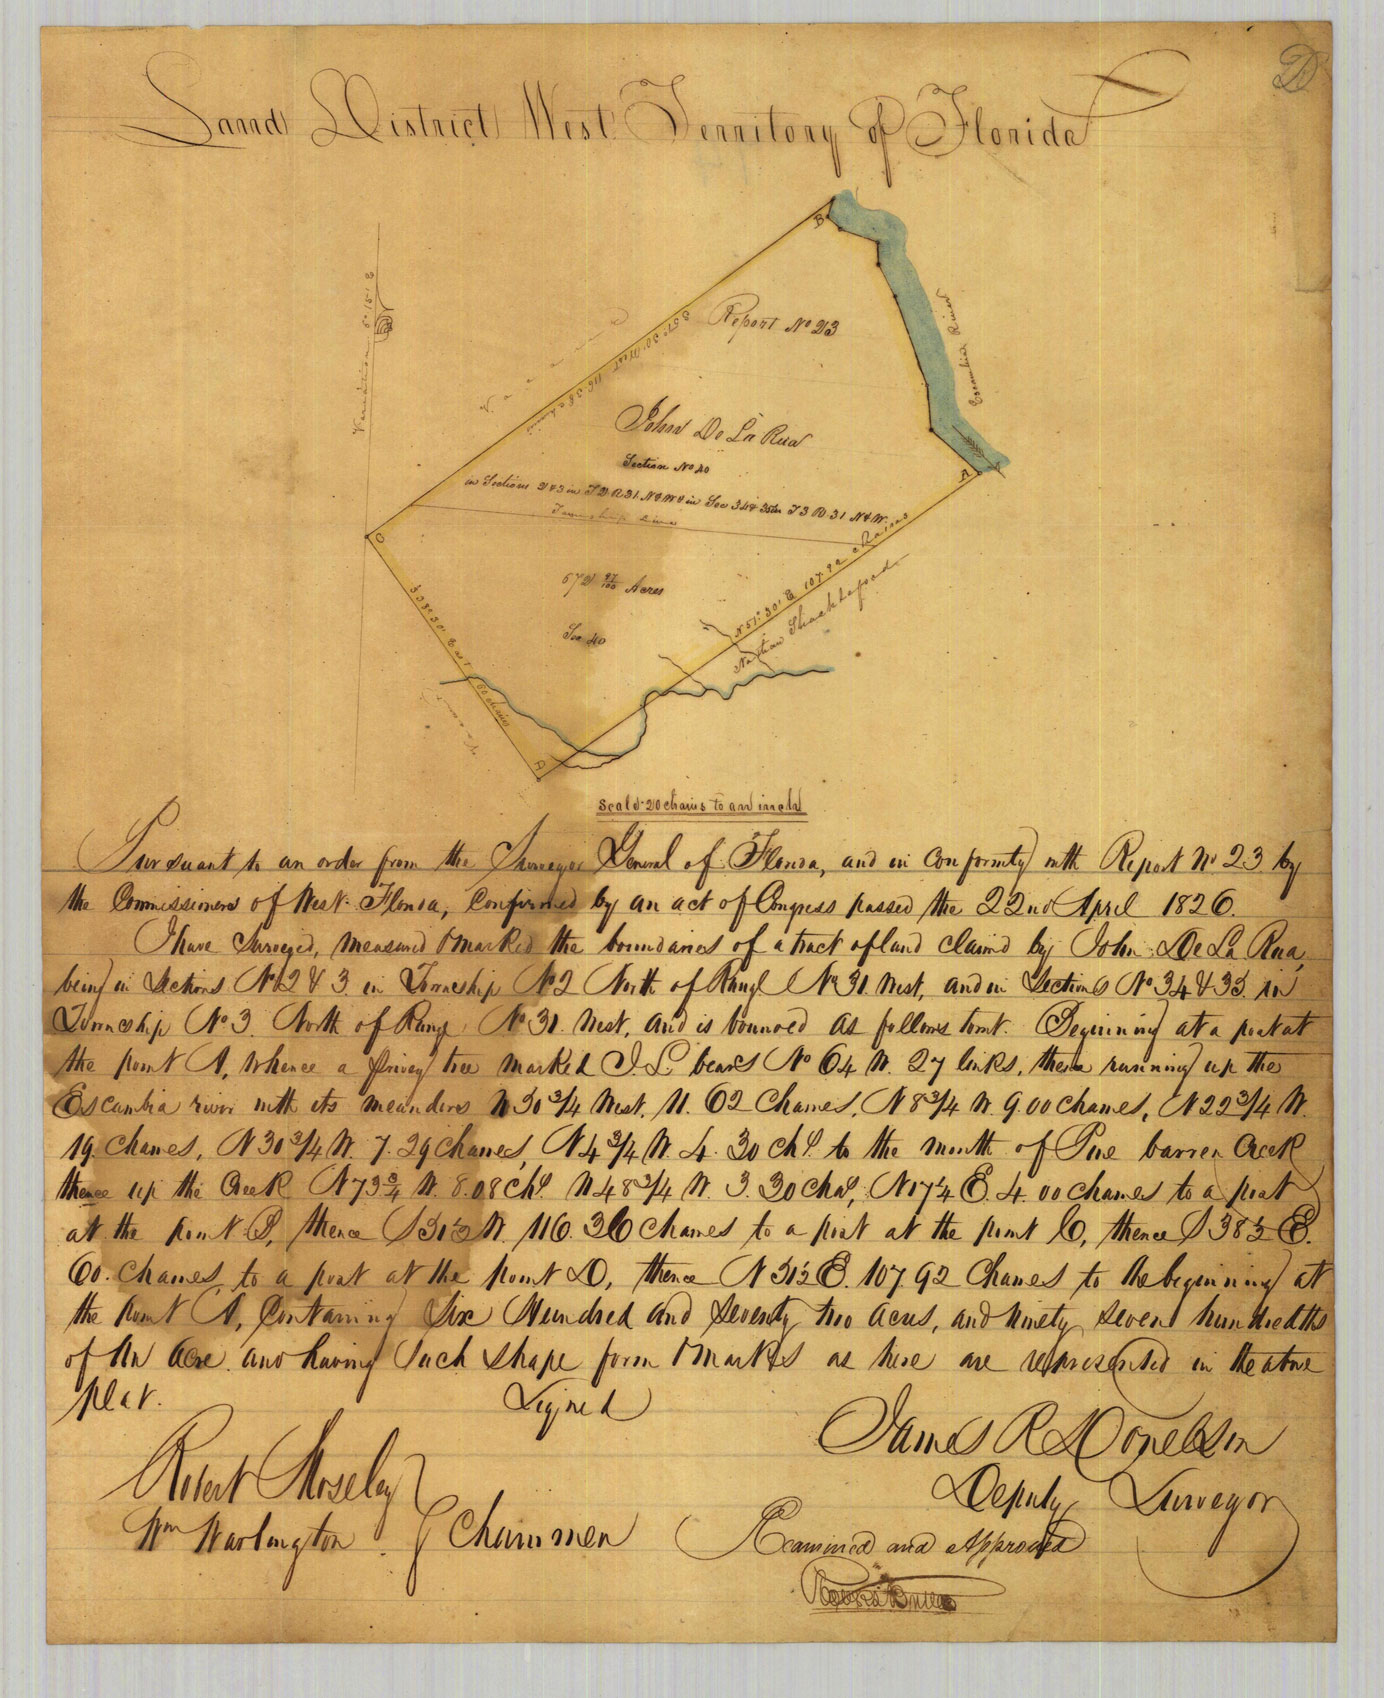 D
Land District West Territory of Florida
B
Variation 6° 15' E
Escambia River
Report No 23
S 51° 30' West 116.36 chains
Vacant
John De La Rua
Section No 40
in Sections 2 & 3 in T 2 R 31 N & W & in Sec 34 & 35 in T 3 R 31 N & W.
Township Line
A
C
672 97/100 Acres
N 51° 30' E 107.92 Chains
S 38° 30' East 60 chains
Sec 40
Nathan Shackleford
D
Scale 20 chains to an inch
Pursuant to an order from the Surveyor General of Florida, and in conformity with Report No 23 by
the Commissioners of West Florida, Confirmed by an act of Congress passed the 22nd April 1826.
I have Surveyed, measured & marked the boundaries of a tract of land claimd by John De La Rua,
being in Sections No 2 & 3 in Township No 2 North of Range No 31 West, and in Sections No 34 & 35 in
Township No 3. North of Range No 31. West, and is bounded as follows towit. Beginning at a post at
the point A, Whence a tree marked J. L. bears No 64 W. 27 links, thence running up the
Escambia river with its meanders N 50 3/4 West. 11.62 Chaines, N 8 3/4 W. 9.00 chaines, N 22 3/4 W.
19. Chaines, N 30 3/4 W. 7.29 Chaines, N 4 3/4 W. 4.30 chs. to the mouth of Pine barren Creek
thence up the Creek N 73 3/4 W. 8.08 chs. N 48 3/4 W. 3.30 chas, N 17 1/4 E. 4.00 chaines to a post
at the point B, thence S 51 1/2 W. 116.36 chaines to a post at the point C, thence S 38 1/2 E.
60. Chaines, to a post at the point D, thence N 51 1/2 E. 107.92 Chaines to the beginning at
the point A, Containing Six Hundred and Seventy two acres, and ninety seven hundredths
of An Acre. and having Such shape form & marks as here are represented in the above
plat.
Signed
James R Donelson
Deputy Surveyor
Robert Moseley
Wm Warlington
Chainmen
Examined and Approved
Robert Butler